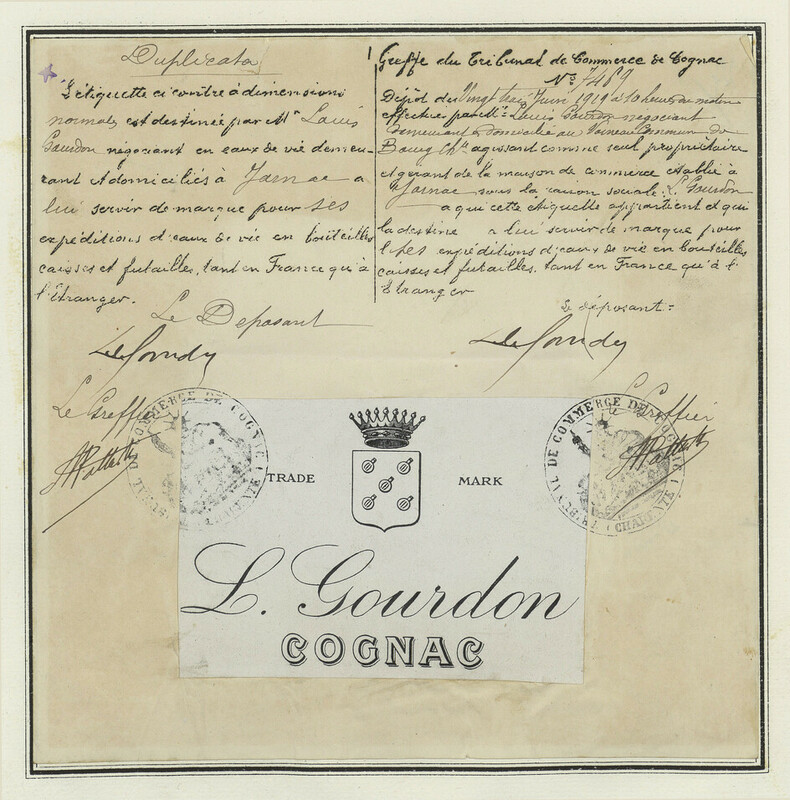 Duplicata
L'étiquette ci contre à dimensions
normales est destinée par Mr Louis
Gourdon négociant en eaux de vie demeu-
rant et domiciliés à Jarnac a
lui servir de marque pour ses
expéditions d'eaux de vie en bouteilles
caisses et futailles, tant en France qu'à
l'étranger.
Le Déposant
Le Greffier
Greffe du Tribunal de Commerce de Cognac
No 7489
Dépôt du Vingt trois Juin 1919 à 10 heures du matin
effectué par Mr Louis Gourdon négociant
demeurant et domicilié au Commun de
Bourg Chte agissant comme seul propriétaire
et gérant de la maison de commerce établie à
Jarnac sous la raison sociale. L. Gourdon
a qui cette étiquette appartient et qui
la destine a lui servir de marque pour
expéditions d'eaux de vie en bouteilles
caisses et futailles, tant en France qu'à l'
Etranger
Le déposant =
Le Greffier
COMMERCE DE COGNAC
CHARENTE
TRADE MARK
L. Gourdon
COGNAC
DE COMMERCE DE
CHARENTE